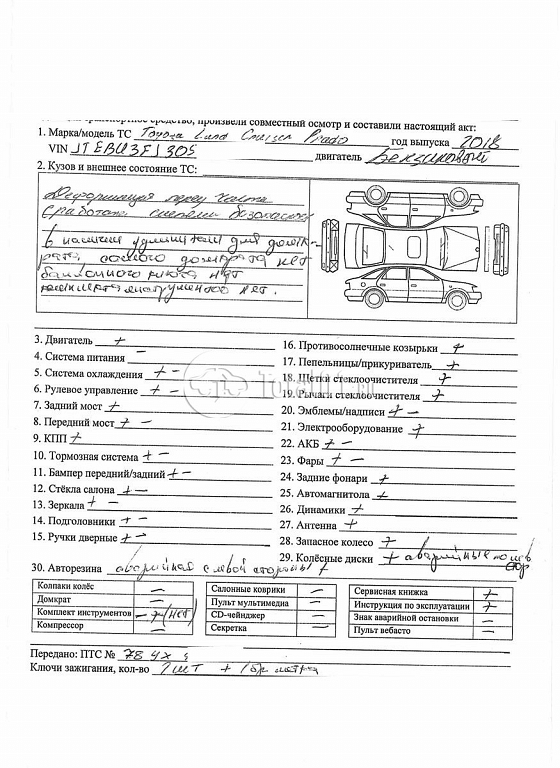 транспортное средство, произвели совместный осмотр и составили настоящий акт:
1. Марка/модель ТС Toyota Land Cruiser Prado год выпуска 2018
VIN JTEBU3FJ305 двигатель Бензиновый
2. Кузов и внешнее состояние ТС:
Деформация перед части
Сработала система безопасн
В наличии удлинители для домк-
рата, самого домкрата нет
баллонного ключа нет
комплекта инструментов нет.
3. Двигатель +
4. Система питания –
5. Система охлаждения + –
6. Рулевое управление + –
7. Задний мост +
8. Передний мост + –
9. КПП +
10. Тормозная система + –
11. Бампер передний/задний + –
12. Стёкла салона + –
13. Зеркала + –
14. Подголовники + –
15. Ручки дверные + –
16. Противосолнечные козырьки +
17. Пепельницы/прикуриватель +
18. Щетки стеклоочистителя +
19. Рычаги стеклоочистителя +
20. Эмблемы/надписи + –
21. Электрооборудование +
22. АКБ + –
23. Фары + –
24. Задние фонари +
25. Автомагнитола +
26. Динамики +
27. Антенна +
28. Запасное колесо +
29. Колёсные диски + аварийные
30. Авторезина аварийная с левой стороны +
Колпаки колёс –
Домкрат –
Комплект инструментов – + (нет)
Компрессор –
Салонные коврики –
Пульт мультимедиа –
CD-чейнджер –
Секретка –
Сервисная книжка +
Инструкция по эксплуатации +
Знак аварийной остановки –
Пульт вебасто –
Передано: ПТС № 78 УХ
Ключи зажигания, кол-во 1 шт +